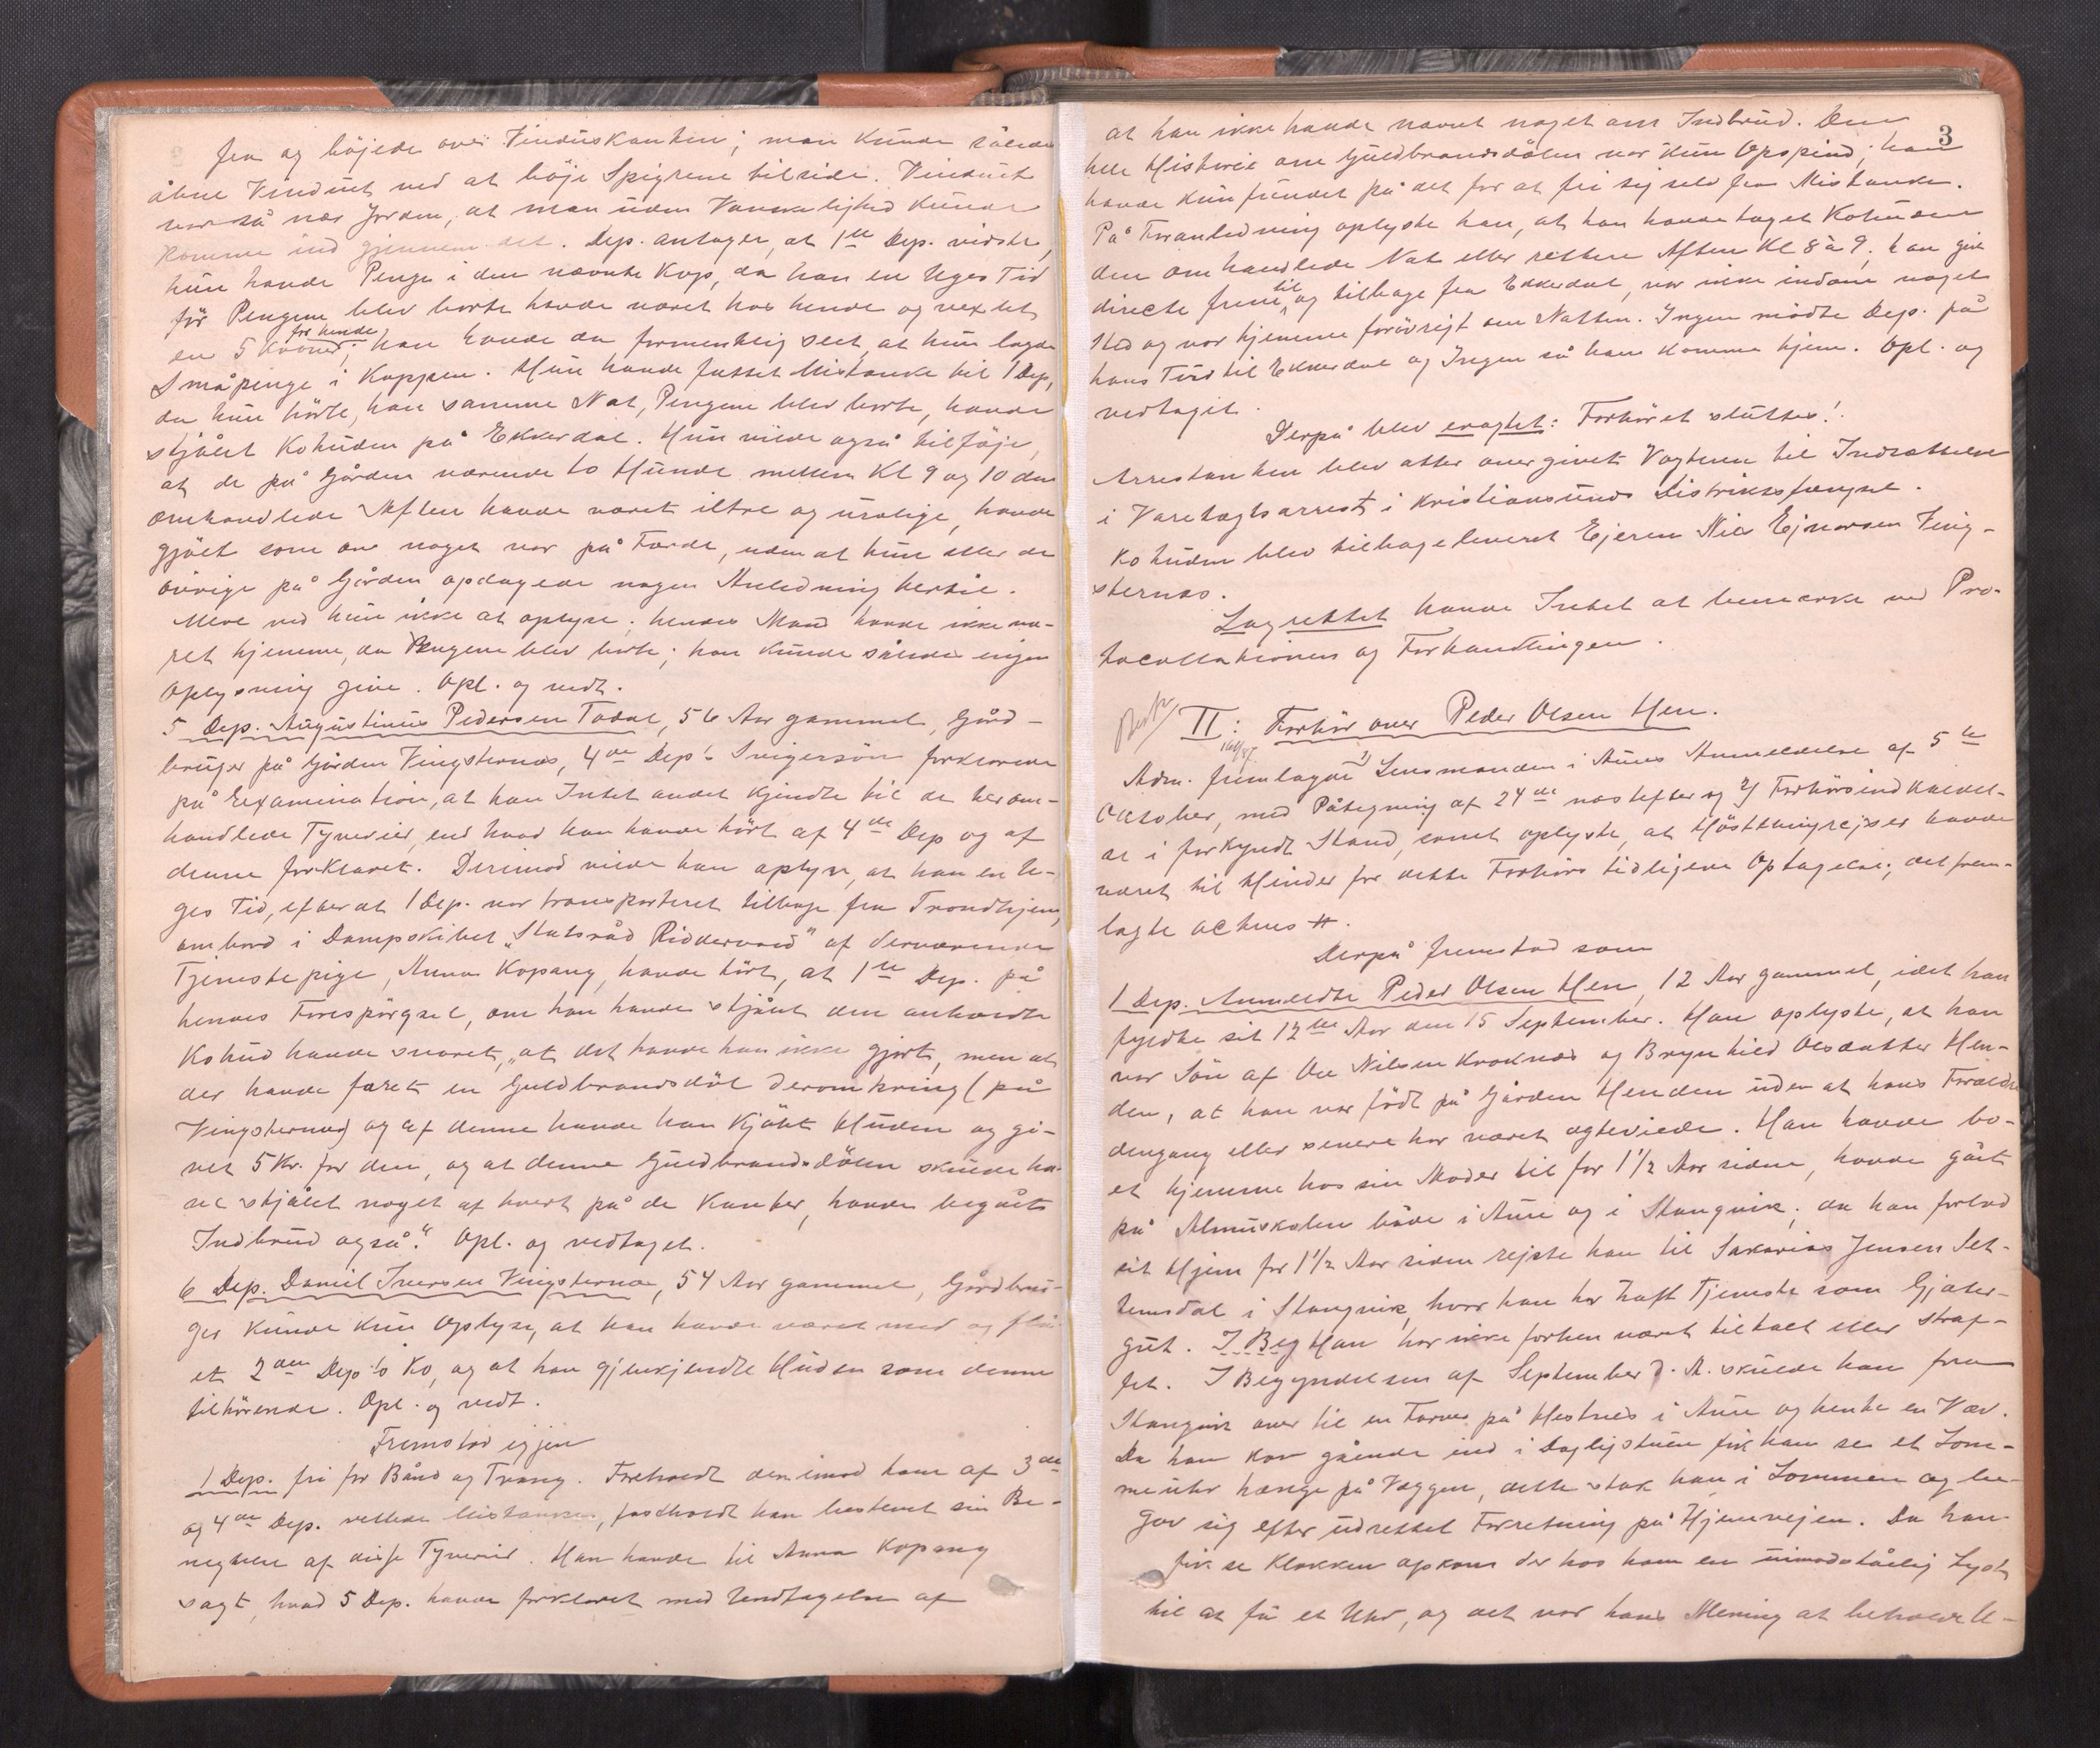 fra og böjede over Vinduskanten; man kunde således
åbne Vinduet ved at böje Spigrene tilside. Vinduet
var så nær Jorden, at man uden Vanskelighed kunde
komme ind gjennem det. Dep. antager, at 1ste Dep. vidste,
hun havde Penge i den nævnte Kop, da han en Uges Tid
för Pengene blev borte havde været hos hende og vexlet
for hende
en 5 Kroner; han havde da formentlig seet, at hun lagde
Småpenge i Koppen. Hun havde fattet Mistanke til 1 Dep,
da hun hörte, han samme Nat, Pengene blev borte, havde
stjålet Kohuden på Ekkerdal. Hun vilde også tilföje,
at de på Gården værende to Hunde mellem Kl 9 og 10 den
omhandlede Aften havde været iltre og urolige, havde
gjöet som om noget var på Færde, uden at hun eller de
övrige på Gården opdagede nogen Anledning hertil.
Mere ved hun ikke at oplyse; hendes Mand havde ikke væ-
ret hjemme, da Pengene blev borte; han kunde således ingen
Oplysning give. Opl. og vedt.
5 Dep. Augustinus Pedersen Todal, 56 Aar gammel, Gård-
bruger på Gården Vingsternes, 4de Dep's Svigersön forklarede
på Examination, at han Intet andet kjendte til de herom-
handlede Tyverier, end hvad han havde hört af 4de Dep og af
denne forklaret. Derimod vilde han oplyse, at han en U-
ges Tid, efter at 1 Dep. var transporteret tilbage fra Trondhjem,
ombord i Dampskibet "Statsråd Riddervold" af derværende
Tjenestepige, Anna Kopang, havde hört, at 1ste Dep. på
hendes Forespörgsel, om han havde stjålet den anholdte
Kohud havde svaret, "at det havde han ikke gjort, men at
der havde faret en Guldbrandsdöl deromkring (på
Vingsternes) og af denne havde han kjöbt Huden og gi-
vet 5 Kr. for den, og at denne Guldbrandsdölen skulde ha-
ve stjålet noget af hvert på de Kanter, havde begået
Indbrud også." Opl. og vedtaget.
6 Dep. Daniel Iversen Vingsternes, 54 Aar gammel, Gårdbru-
ger kunde kun Oplyse, at han havde været med og flå-
et 2den Dep's Ko, og at han gjenkjendte Huden som denne
tilhörende. Opl. og vedt.
Fremstod igjen
1 Dep. fri for Bånd og Tvang. Foreholdt den imod ham af 3die
og 4de Dep. rettede Mistanke, fastholdt han bestemt sin Be-
negtelse af disse Tyverier. Han havde til Anna Kopang
sagt, hvad 5 Dep. havde forklaret med Undtagelse af
3
at han ikke havde nævnt noget om Indbrud. Den
hele Historie om Guldbrandsdölen var kun Opspind; han
havde kun fundet på det for at fri sig selv fra Mistanke.
På Foranledning oplyste han, at han havde taget Kohuden
den omhandlede Nat eller rettere Aften Kl 8 à 9; han gik
til
directe frem og tilbage fra Ekkerdal, var ikke indom noget
Sted og var hjemme forövrigt om Natten. Ingen mödte Dep. på
hans Tur til Ekkerdal og Ingen så ham komme hjem. Opl. og
vedtaget.
Derpå blev eragtet: Forhöret sluttes!
Arrestanten blev atter overgivet Vagten til Indsættelse
i Varetægtsarrest i Kristiansunds Distriktsfængsel.
Kohuden blev tilbageleveret Ejeren Nils Ejnarsen Ving-
sternes.
Lagrettet havde Intet at bemærke ved Pro-
tocollationen og Forhandlingen.
II: Forhör over Peder Olsen Hen.
Adm. fremlagde 1) Lensmanden i Aures Anmeldelse af 5te
Oktober, med Påtegning af 24de næstefter og 2) Forhörsindkaldel-
se i forkyndt Stand, samt oplyste, at Hösttingsrejser havde
været til Hinder for dette Forhörs tidligere Optagelse; det frem-
lagte acteres #.
Derpå fremstod som
1 Dep. Anmeldte Peder Olsen Hen, 12 Aar gammel, idet han
fyldte sit 12te Aar den 15 September. Han oplyste, at han
var Sön af Ole Nilsen Kroknes og Brynhild Olsdatter Hen-
den, at han var födt på Gården Henden uden at hans Forældre
dengang eller senere har været ægteviede. Han havde bo-
et hjemme hos sin Moder til for 1 1/2 Aar siden, havde gået
på Almuskolen både i Aure og i Stangvik; da han forlod
sit Hjem for 1 1/2 Aar siden rejste han til Sakarias Jensen Set-
temsdal i Stangvik, hvor han har havt Tjeneste som Gjæter-
gut. I Beg Han har ikke forhen været tiltalt eller straf-
fet. I Begyndelsen af September d. A. skulde han fra
Stangvik over til en Farver på Hestnes i Aure og hente en Væv.
Da han kom gående ind i Dagligstuen fik han se et Lom-
meuhr hænge på Væggen, dette stak han i Lommen og be-
gav sig efter udrettet Forretning på Hjemvejen. Da han
fik se Klokken opkom der hos ham en uimodståelig Lyst
til at få et Uhr, og det var hans Mening at beholde U-